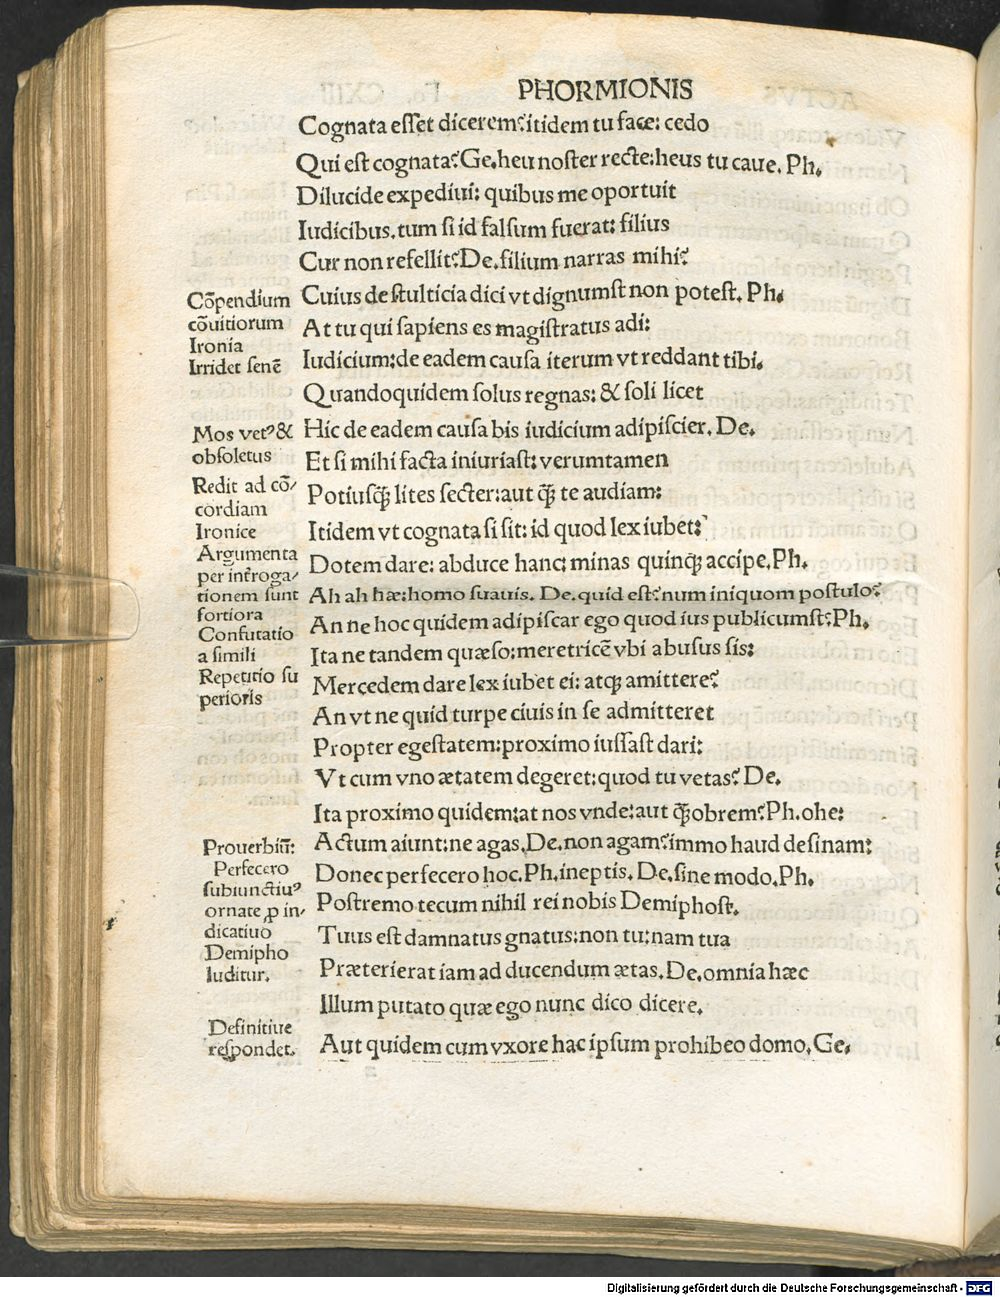 PHORMIONIS
Cognata eſſet dicerem?itidem tu face: cedo
Qui eſt cognata? Ge.heu noſter recte:heus tu caue. Ph.
Dilucide expediui: quibus me oportuit
Iudicibus.tum ſi id falſum fuerat: filius
Cur non refellit? De.filium narras mihi?
Cuius de ſtulticia dici vt dignumſt non poteſt. Ph.
At tu qui ſapiens es magiſtratus adi:
Iudicium:de eadem cauſa iterum vt reddant tibi.
Quandoquidem ſolus regnas: & ſoli licet
Hic de eadem cauſa bis iudicium adipiſcier. De.
Et ſi mihi facta iniuriaſt: verumtamen
Potiusq̃ lites ſecter:aut q̃ te audiam:
Itidem vt cognata ſi ſit: id quod lex iubet:
Dotem dare: abduce hanc: minas quinqꝫ accipe.Ph.
Ah ah hæ:homo ſuauis. De.quid eſt?num iniquom poſtulo?
An ne hoc quidem adipiſcar ego quod ius publicumſt?Ph.
Ita ne tandem quæſo:meretricē vbi abuſus ſis:
Mercedem dare lex iubet ei: atqꝫ amittere?
An vt ne quid turpe ciuis in ſe admitteret
Propter egeſtatem:proximo iuſſaſt dari:
Vt cum vno ætatem degeret:quod tu vetas? De.
Ita proximo quidem:at nos vnde:aut q̃obrem?Ph.ohe:
Actum aiunt:ne agas.De.non agam?immo haud deſinam:
Donec perfecero hoc.Ph.ineptis. De.ſine modo.Ph.
Poſtremo tecum nihil rei nobis Demiphoſt.
Tuus eſt damnatus gnatus:non tu:nam tua
Præterierat iam ad ducendum ætas. De.omnia hæc
Illum putato quæ ego nunc dico dicere.
Aut quidem cum vxore hac ipſum prohibeo domo. Ge.
Cōpendium
cōuitiorum
Ironia
Irridet ſenē
Mos vetꝰ &
obſoletus
Redit ad cō/
cordiam
Ironice
Argumenta
per inťroga/
tionem ſunt
fortiora
Confutatio
a ſimili
Repetitio ſu
perioris
Prouerbiū:
Perfecero
ſubiunctiuꝰ
ornate ꝓ in/
dicatiuo
Demipho
luditur.
Definitiue
reſpondet.
Digitalisierung gefördert durch die Deutsche Forschungsgemeinschaft - DFG